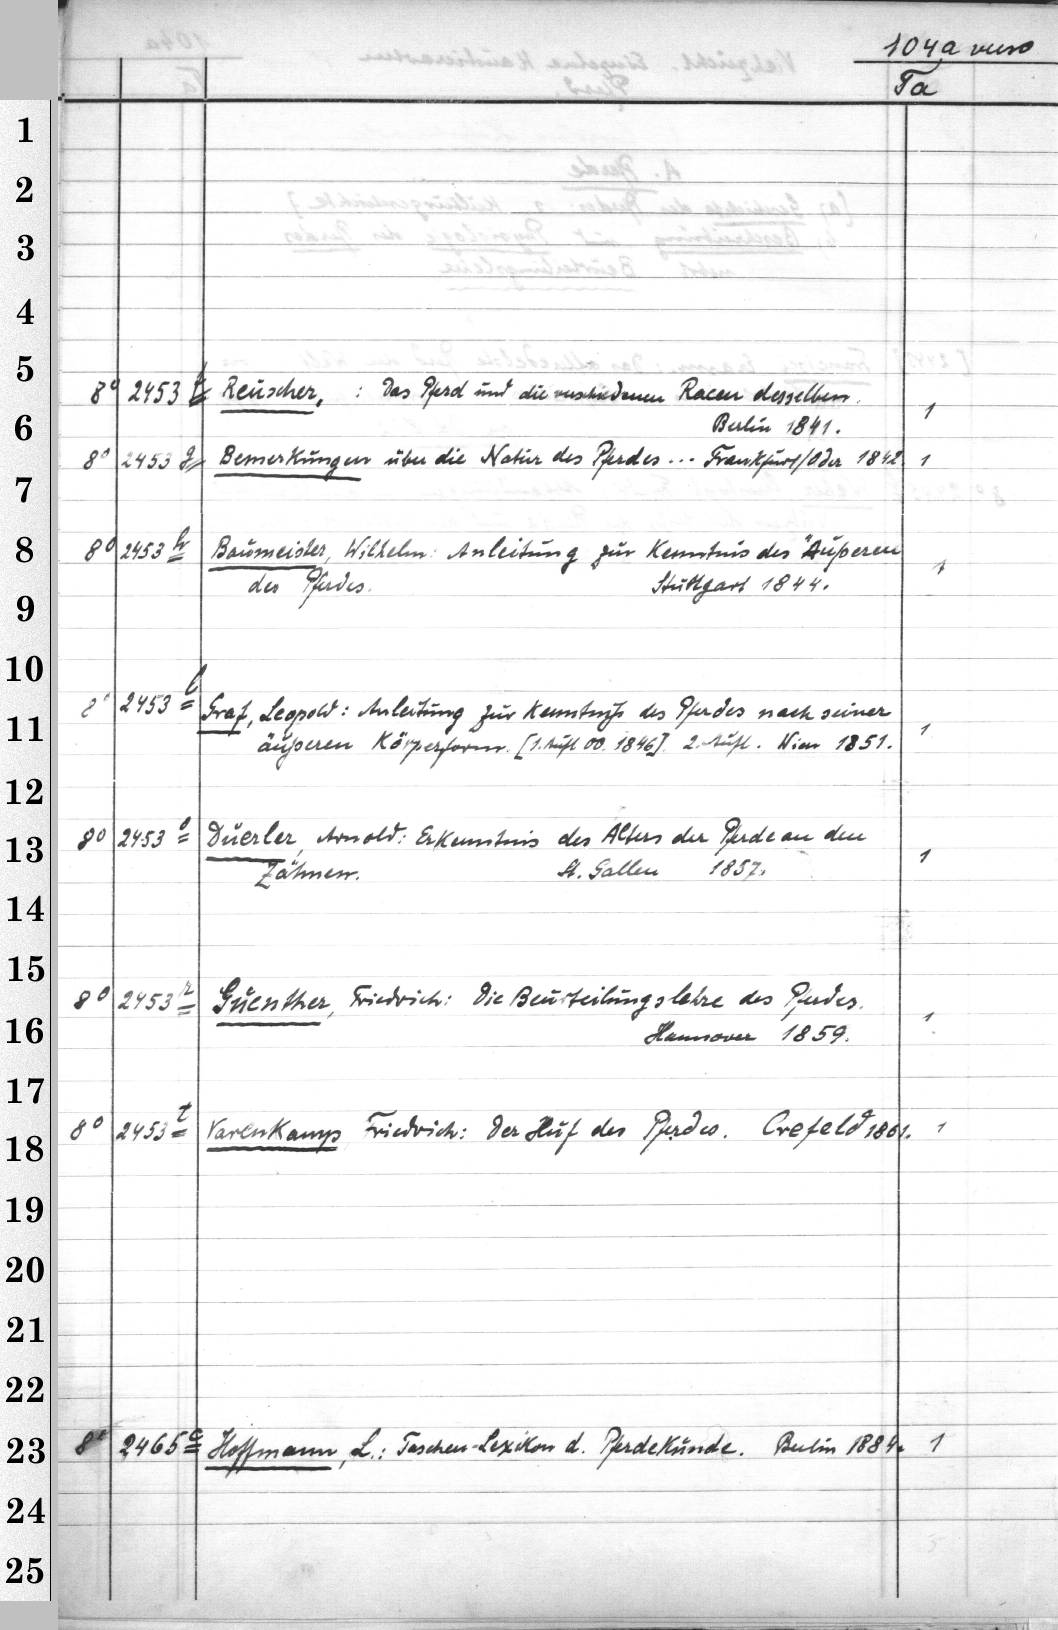 104a verso
Ta
1
2
3
4
5
8° 2453 f Reuscher, : Das Pferd und die verschiedenen Racen desselben.
1
6
Berlin 1841.
8° 2453 g Bemerkungen über die Natur des Pferdes ... Frankfurt/Oder 1842. 1
7
8 8° 2453 h Baumeister, Wilhelm: Anleitung zur Kenntnis des Äußeren
1
des Pferdes. Stuttgart 1844.
9
10
8° 2453 Graf, Leopold: Anleitung zur Kenntniß des Pferdes nach seiner
11
1
äußeren Körperform. [1. Aufl 00. 1846]. 2. Aufl. Wien 1851.
12
8° 2453 Duerler, Arnold: Erkenntnis des Alters der Pferde an den
13
1
Zähnen. St. Gallen 1857.
14
15
8° 2453 r Guenther, Friedrich: Die Beurteilungslehre des Pferdes.
1
16
Hannover 1859.
17
8° 2453 t Varenkamp, Friedrich: Der Huf des Pferdes. Crefeld 1861. 1
18
19
20
21
22
23 8° 2465 a Hoffmann, L.: Taschen-Lexikon d. Pferdekunde. Berlin 1884. 1
24
25